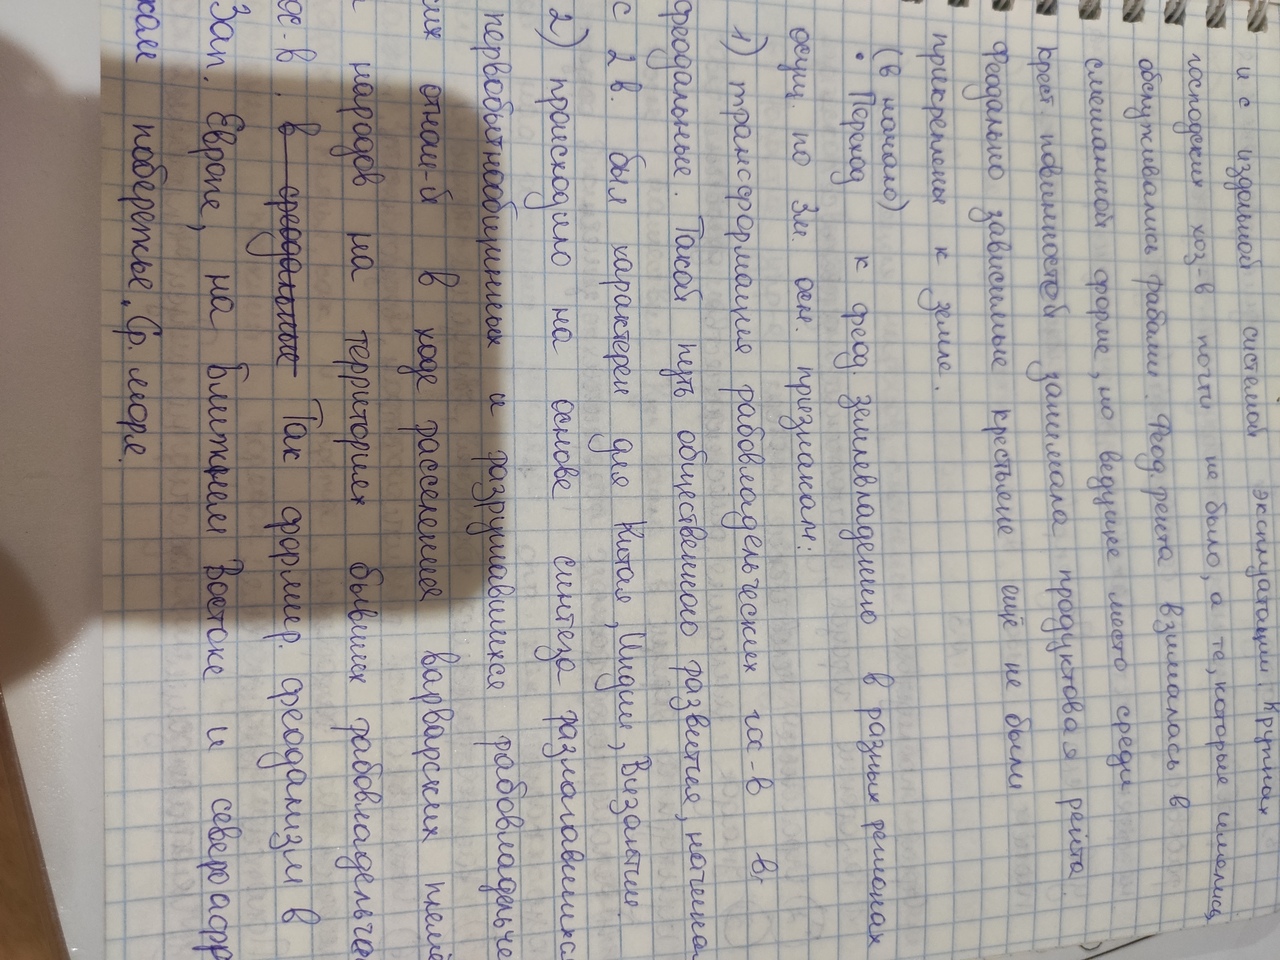 и с издольной системой эксплуатации. Крупных
господских хоз-в почти не было, а те, которые имелись,
обслуживались рабами. Феод. рента взималась в
смешанной форме, но ведущее место среди
крест. повинностей занимала продуктовая рента.
Феодально зависимые крестьяне ещё не были
прикреплены к земле.
(в начало)
• Переход к феод. землевладению в разных регионах
осущ. по 3м. осн. признакам:
1) трансформация рабовладельческих гос-в в
феодальные. Такой путь общественного развития, начиная
с 2 в. был характерен для Китая, Индии, Византии.
2) происходило на основе синтеза разлагавшихся
первобытнообщинных и разрушавшихся рабовладельче
ских отнош-й в ходе расселения варварских племё
и народов на территориях бывших рабовладельче
гос-в. в феодальные Так формир. феодализм в
Зап. Европе, на Ближнем Востоке и североафр
ком побережье. Ср. моря.